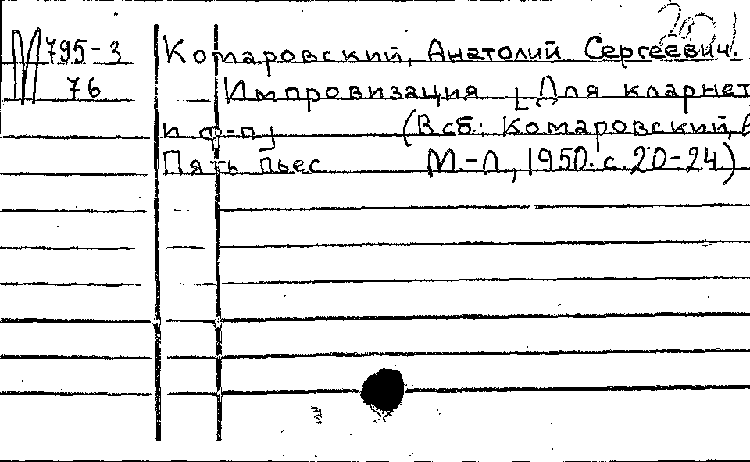 М 795-3 Комаровский, Анатолий Сергеевич.
76 Импровизация [Для кларнет
и ф-п] (В сб.: Комаровский,
Пять пьес М.-Л., 1950. с. 20-24)